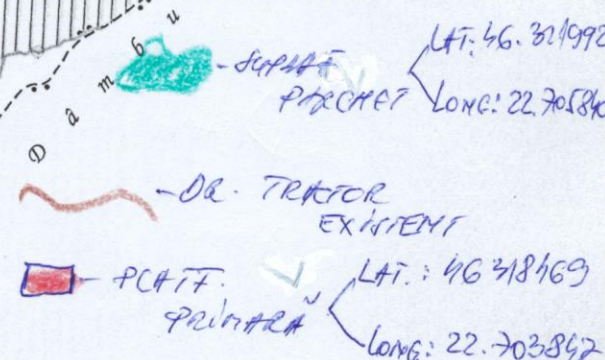 Dambu
- SUPRAF. PARCHET
LAT: 46.321992
LONG: 22.705840
- DR. TRACTOR EXISTENT
- PLATF. PRIMARĂ
LAT.: 46318469
LONG: 22.703842